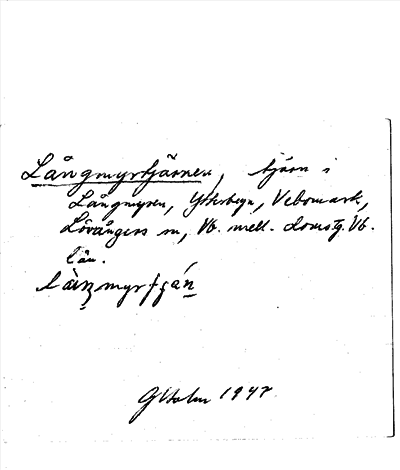 Långmyrtjärnen, tjärn i
Långmyren, Ytterbyn, Vebomark,
Lövångers sn, Vb. mell. domsg. Vb.
län.
GHolm 1947